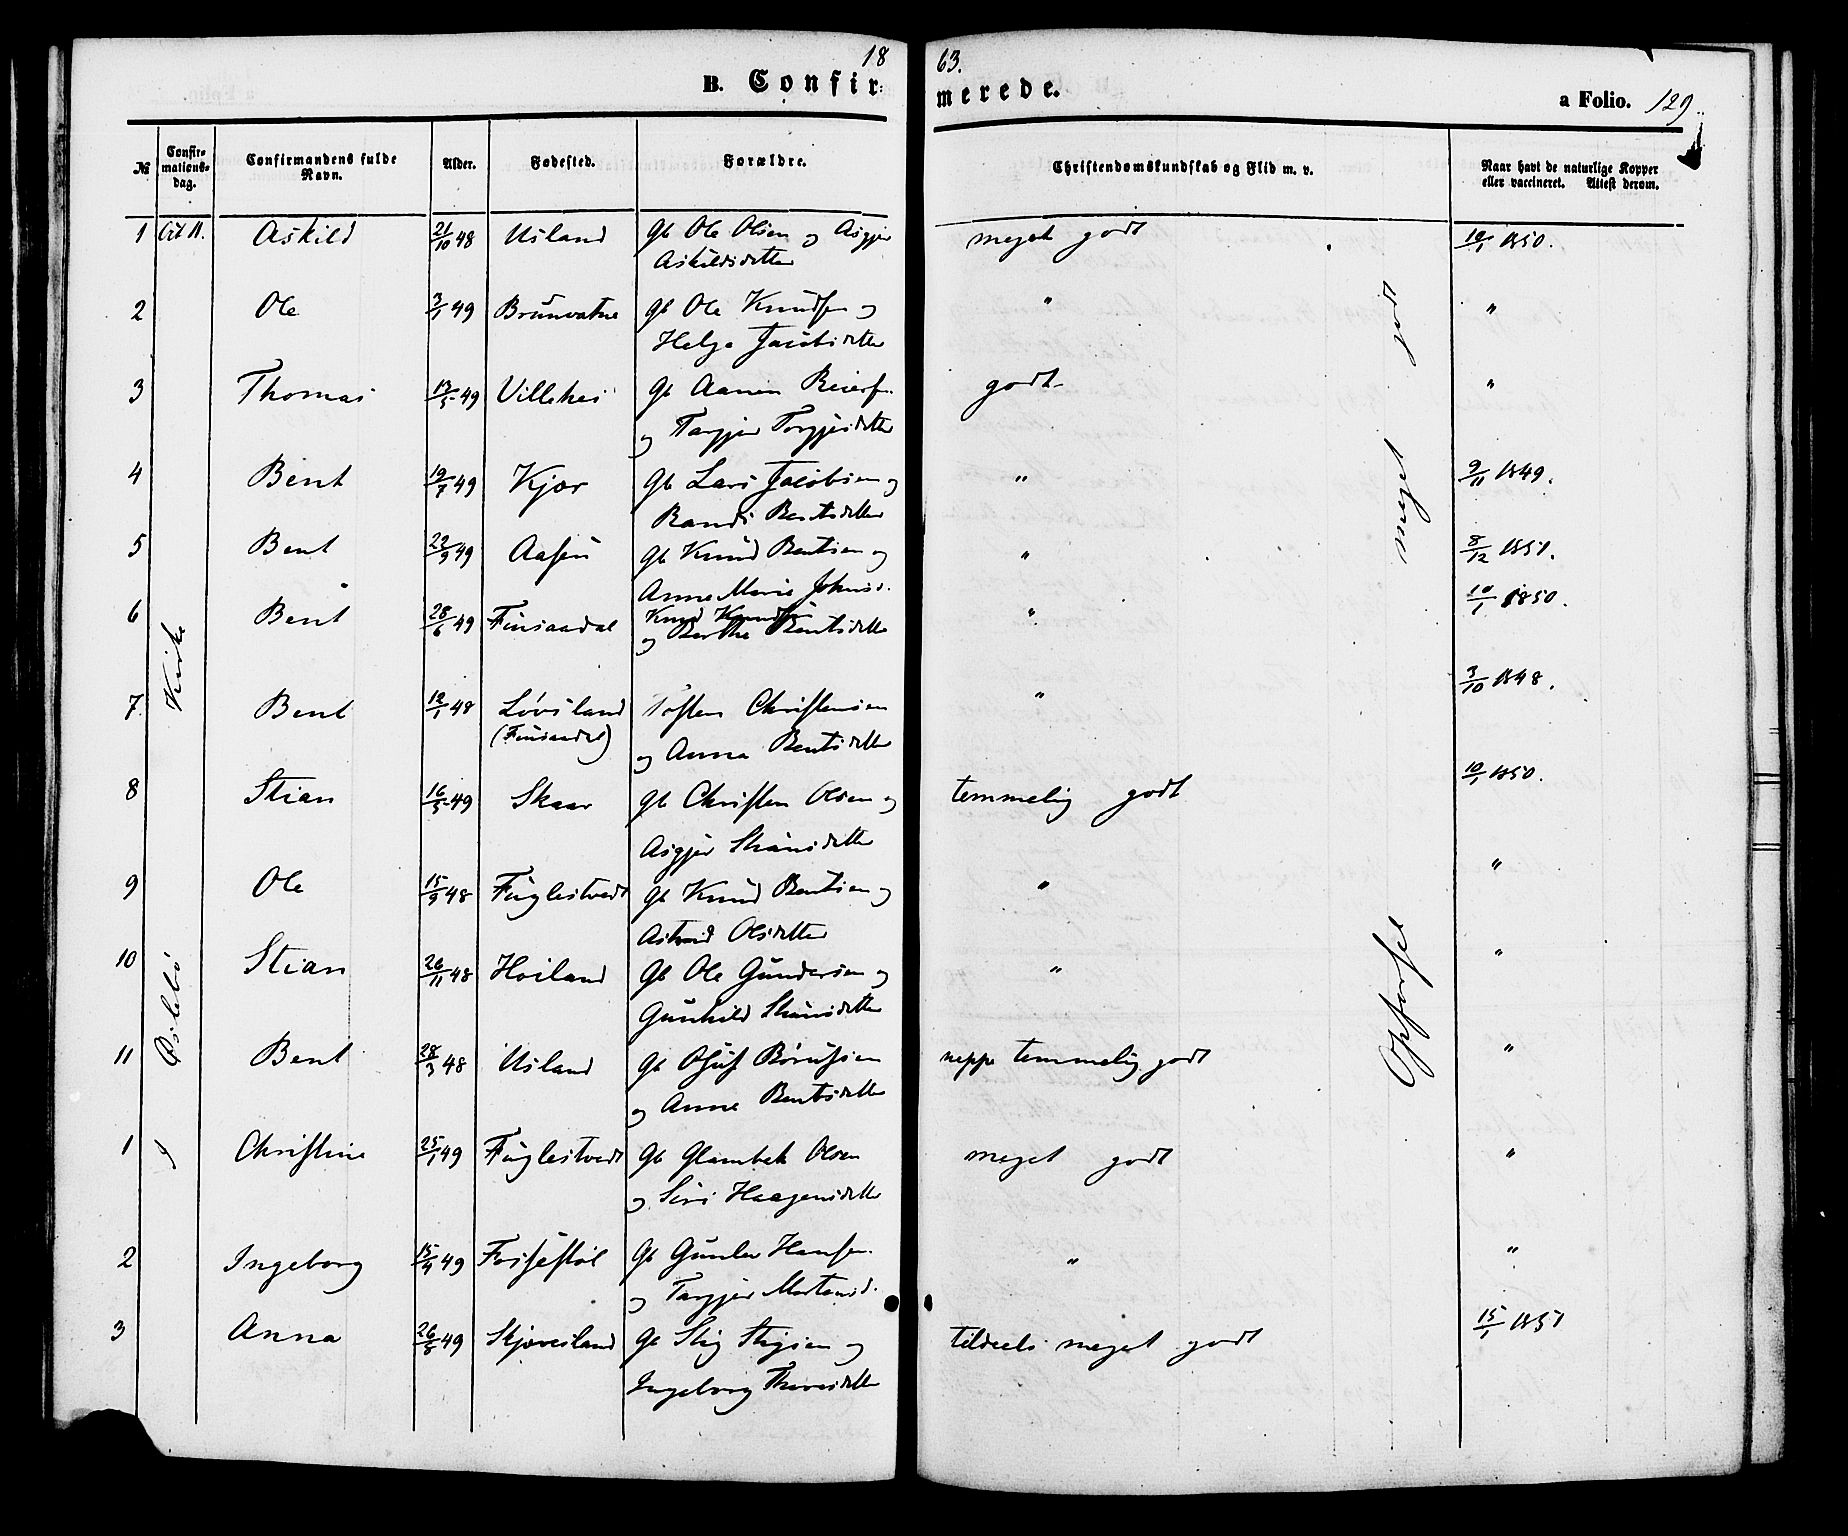 18 63.
B. Confirmerede. a Folio. 129.
№ Confirmationsdag. Confirmandens fulde Navn. Alder. Fødested. Forældre. Christendomskundskab og Flid m. v. Naar havt de naturlige Kopper eller vaccineret. Attest derom.
1 Askild 21/10 48 Usland Gb Ole Olsen og Asgjer meget godt 10/1 1850.
Askildsdatter
2 Ole 3/1 49 Brunvatne Gb Ole Knudsen og " "
Helge Jacobsdatter
3 Thomas 13/5 49 Villehei Gb Aanen Reiers. godt "
og Targjer Torgjusdatter
4 Bent 19/7 49 Kjær Gb Lars Jacobsen og " 9/11 1849.
Randi Bentsdatter
5 Bent 22/9 49 Aasen Gb Knud Bentsen og " 8/12 1851.
Anne Marie Johnsd.
6 Bent 28/6 49 Finsaadal Knud Knudsen " 10/1 1850.
og Berthe Bentsdatter
7. Bent 12/1 48 Løvsland Tosten Christensen " 3/10 1848.
(Finsaadal) og Anna Bentsdatter
8 Stian 16/5 49 Skaar Gb Christen Olsen og temmelig godt 10/1 1850.
Asgjer Stiansdatter
9 Ole 15/9 48 Fuglestvedt Gb Knud Bentsen og " "
Astrid Olsdatter
10 Stian 26/11 48 Hoiland Gb Ole Gundersen og " "
Gunhild Stiansdatter
11 Bent 28/3 48 Usland Gb Oluf Børufsen neppe temmelig godt "
og Anne Bentsdatter
1 Christine 25/1 49 Fuglestvedt Gb Glambek Olsen meget godt "
og Siri Haagensdatter
2 Ingeborg 15/4 49 Fossestøl Gb Gunler Hansen. " "
og Targjer Mortensd.
3 Anna 26/8 49 Skjævesland Gb Stig Stigsen og tildeels meget godt 15/1 1851
Ingeborg Thoresdatter
I Øslebø Kirke
Opførsel meget godt